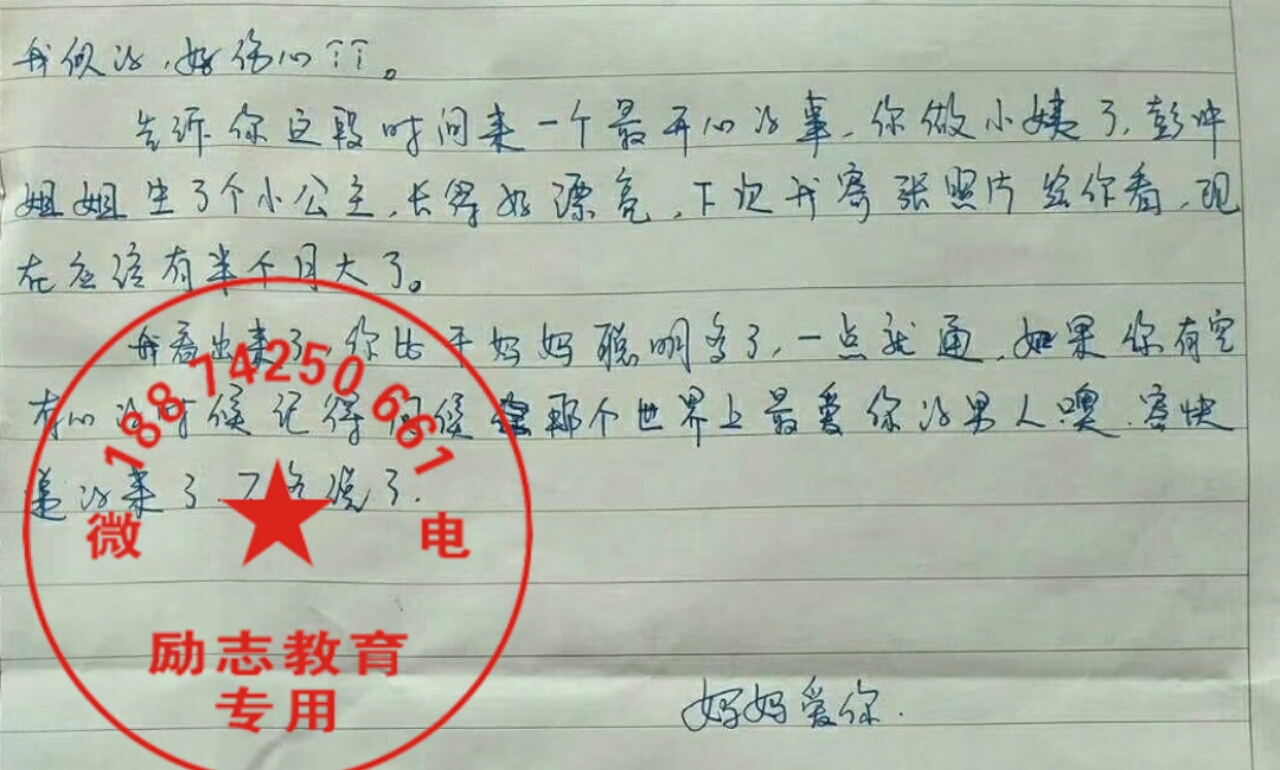 我似的,好伤心TT。
告诉你这段时间来一个最开心的事,你做小姨了,彭冲
姐姐生了个小公主,长得好漂亮,下次我寄张照片给你看,现
在应该有半个月大了。
我看出来了,你比干妈妈聪明多了,一点就通,如果你有空
有心的时候记得问候那个世界上最爱你的男人噢,客快
的来了,不多说了.
妈妈爱你.
18874250661
微 电
励志教育
专用